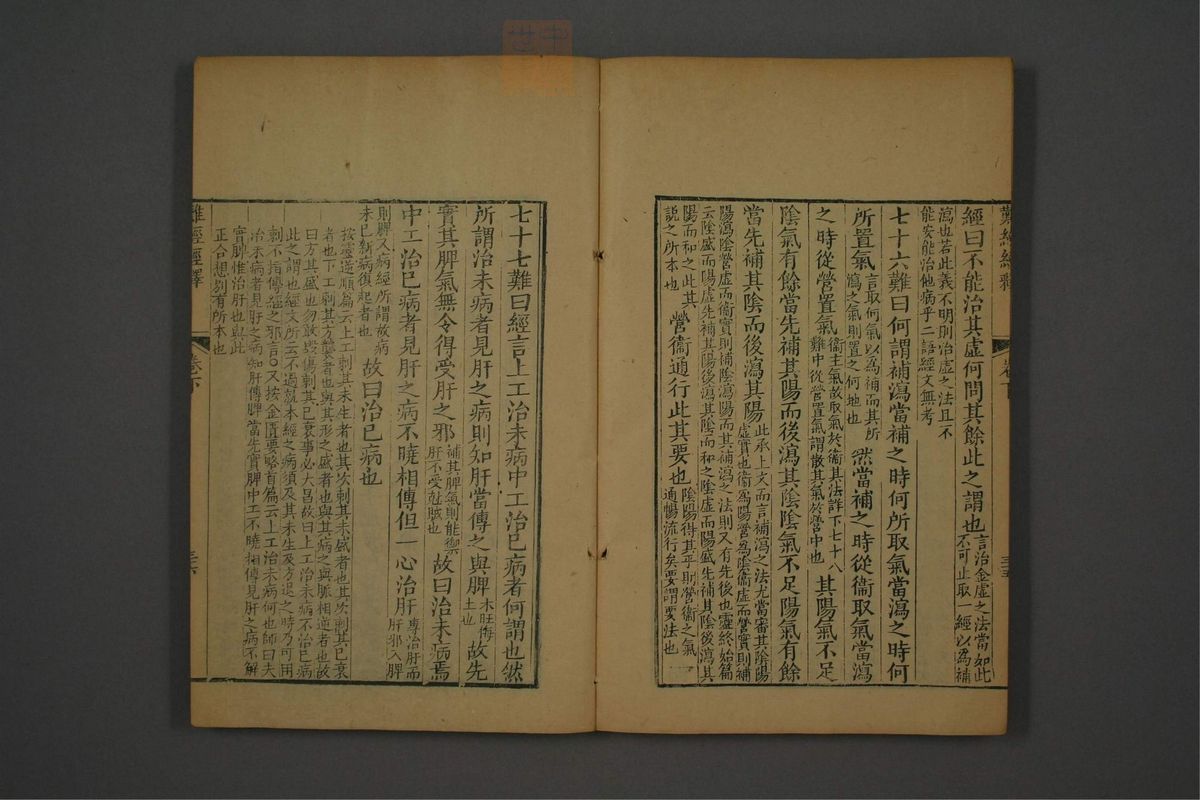 難經經釋
卷下
經曰不能治其虛何問其餘此之謂也言治金虛之法當如此
不可止取一經以爲補
瀉也若此義不明則治虛之法且不
能安能治他病乎二語經文無考
七十六難曰何謂補瀉當補之時何所取氣當瀉之時何
所置氣言取何氣以爲補而其所瀉之氣則置之何地也然當補之時從衞取氣當瀉
之時從營置氣衞主氣故取氣於衞其法詳下七十八難中從營置氣謂散其氣於營中也其陽氣不足
陰氣有餘當先補其陽而後瀉其陰陰氣不足陽氣有餘
當先補其陰而後瀉其陽此承上文而言補瀉之法尤當審其陰陽
虛實也衞爲陽營爲陰衞虛而營實則補
陽瀉陰營虛而衞實則補陰瀉陽而其補瀉之法則又有先後也靈終始篇
云陰盛而陽虛先補其陽後瀉其陰而和之陰虛而陽盛先補其陰後瀉其
陽而和之此其說之所本也營衞通行此其要也陰陽得其平則營衞之氣通暢流行矣要謂要法也
七十七難曰經言上工治未病中工治已病者何謂也然
所謂治未病者見肝之病則知肝當傳之與脾木旺侮土也故先
實其脾氣無令得受肝之邪補其脾氣則能禦肝不受尅賊也故曰治未病焉
中工治已病者見肝之病不曉相傳但一心治肝專治肝而肝邪入脾
則脾又病經所謂故病未已新病復起者也故曰治已病也
按靈逆順篇云上工刺其未生者也其次刺其未盛者也其次刺其已衰
者也下工刺其方襲者也與其形之盛者也與其病之與脈相逆者也故
曰方其盛也勿敢毀傷刺其已衰事必大昌故曰上工治未病不治已病
此之謂也經文所云不過就本經之病須及其未生及方退之時乃可用
刺不指傳經之邪言○又按金匱要略首篇云上工治未病何也師曰夫
治未病者見肝之病知肝傳脾當先實脾中工不曉相傳見肝之病不解
實脾惟治肝也與此
正合想別有所本也
難經經釋
卷下
三十六